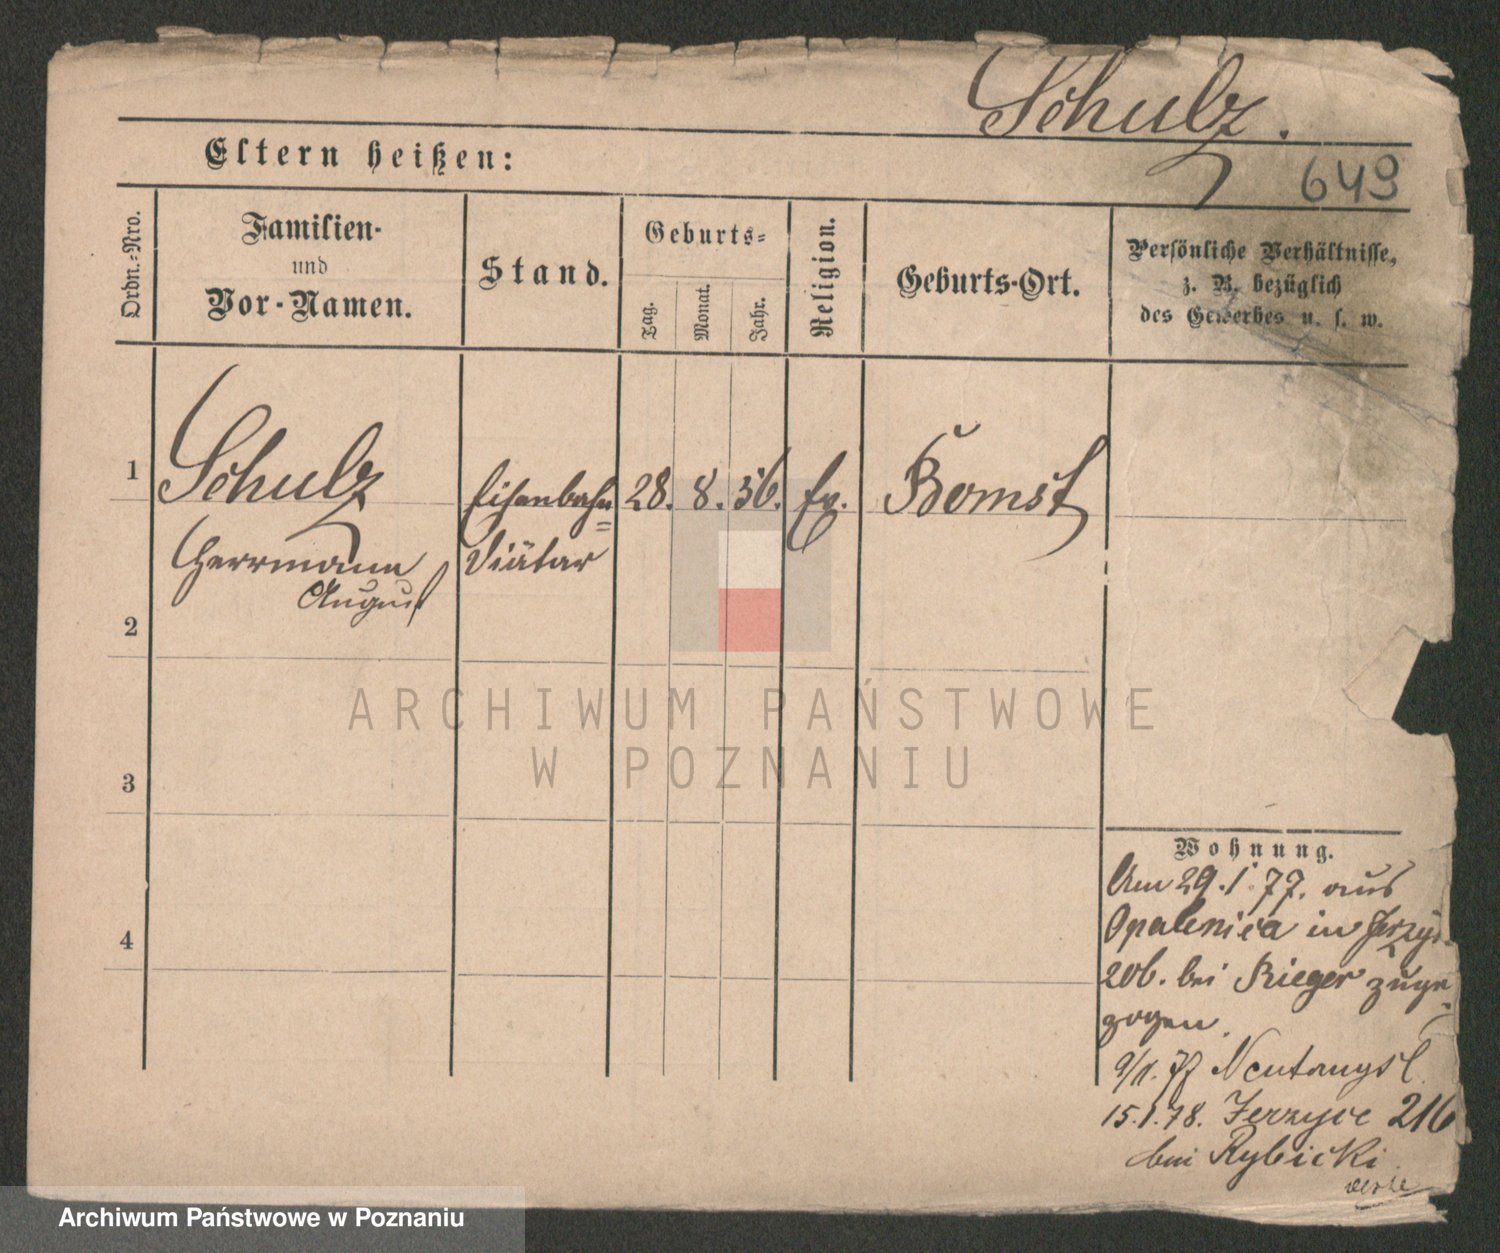 Schulz.
649
Eltern heißen:
Ordn.-Nro.
Familien-
und
Vor-Namen.
Stand.
Geburts-
Tag.
Monat.
Jahr.
Religion.
Geburts-Ort.
Persönliche Verhältnisse,
z. B. bezüglich
des Gewerbes u. s. w.
1
Schulz
Eisenbahn
28. 8. 56. Ev. Bomst
Herrmann
Diätar
August
2
3
4
Wohnung.
Am 29. 1. 77. aus
Opalenica in Jerzyc
206. bei Rieger zuge-
zogen.
15.1.78. Jerzyce 216
bei Rybicki
ARCHIWUM PAŃSTWOWE
W POZNANIU
Archiwum Państwowe w Poznaniu